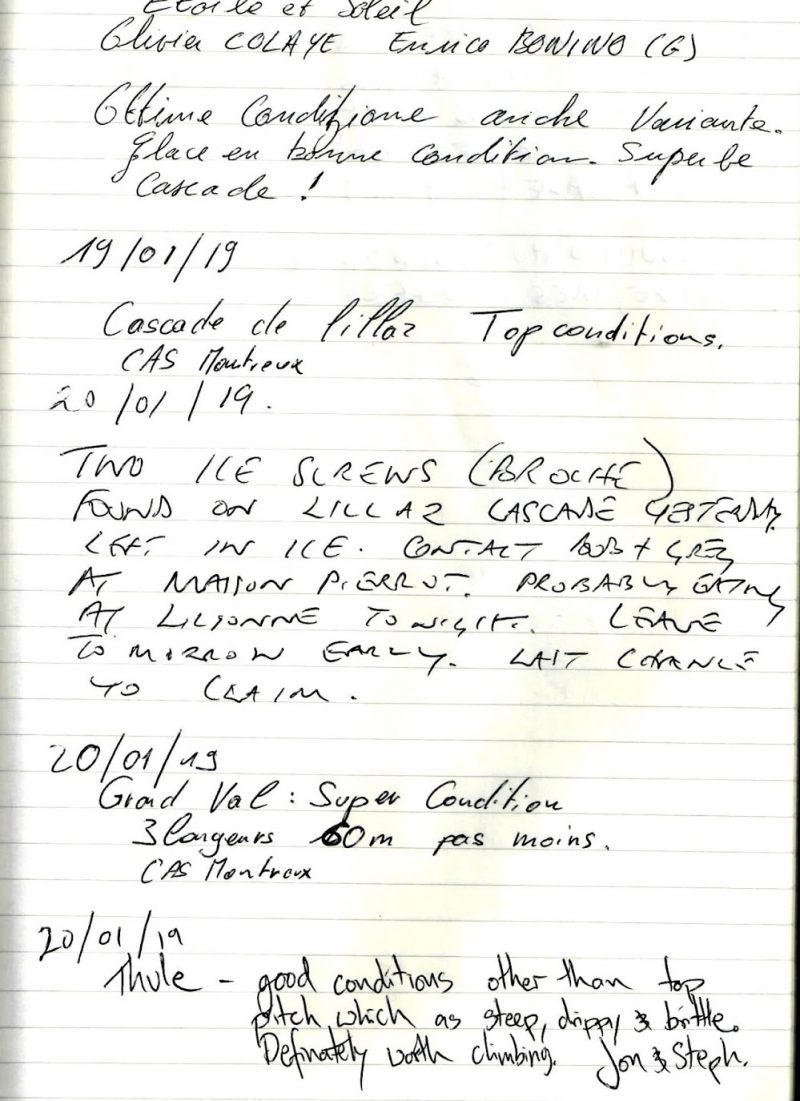 Etoile et Soleil
Olivier COLAYE Enrico BONINO (G)
Ottime Condizione anche Variante.
Glace en bonne condition. Superbe
Cascade !
19/01/19
Cascade de Lillaz Top conditions.
CAS Montreux
20/01/19.
TWO ICE SCREWS (BROCHE)
FOUND ON LILLAZ CASCADE YESTERDAY.
LEFT IN ICE. CONTACT BOB + GREG
AT MAISON PIERROT. PROBABLY EATING
AT LICIONNE TONIGHT. LEAVE
TOMORROW EARLY. LAST CHANCE
TO CLAIM.
20/01/19
Grand Val : Super Condition
3 longeurs 60m pas moins.
CAS Montreux
20/01/19
Thule - good conditions other than top
pitch which as steep, drippy & brittle.
Definately worth climbing. Jon & Steph.